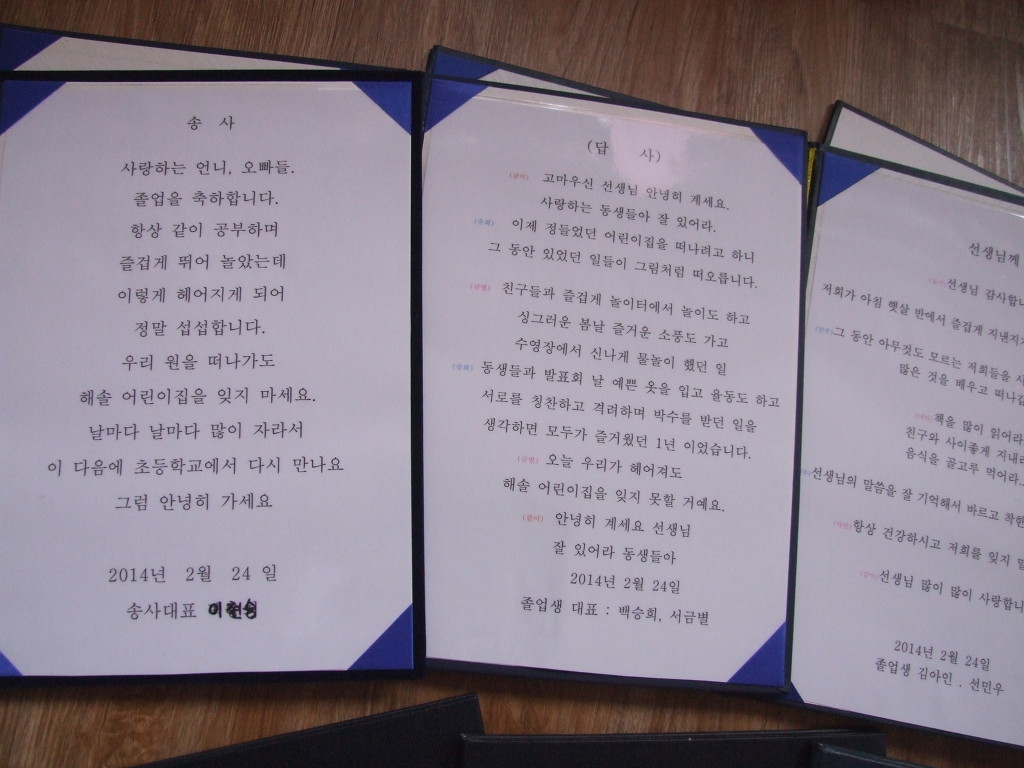 송 사
사랑하는 언니, 오빠들.
졸업을 축하합니다.
항상 같이 공부하며
즐겁게 뛰어 놀았는데
이렇게 헤어지게 되어
정말 섭섭합니다.
우리 원을 떠나가도
해솔 어린이집을 잊지 마세요.
날마다 날마다 많이 자라서
이 다음에 초등학교에서 다시 만나요
그럼 안녕히 가세요
2014년 2월 24 일
송사대표
(답 사)
고마우신 선생님 안녕히 계세요.
사랑하는 동생들아 잘 있어라.
이제 정들었던 어린이집을 떠나려고 하니
그 동안 있었던 일들이 그림처럼 떠오릅니다.
(금별) 친구들과 즐겁게 놀이터에서 놀이도 하고
싱그러운 봄날 즐거운 소풍도 가고
수영장에서 신나게 물놀이 했던 일
(승희) 동생들과 발표회 날 예쁜 옷을 입고 율동도 하고
서로를 칭찬하고 격려하며 박수를 받던 일을
생각하면 모두가 즐거웠던 1년 이었습니다.
(금별) 오늘 우리가 헤어져도
해솔 어린이집을 잊지 못할 거예요.
(같이) 안녕히 계세요 선생님
잘 있어라 동생들아
2014년 2월 24일
졸업생 대표 : 백승희, 서금별
선생님께
선생님 감사합니
저희가 아침 햇살 반에서 즐겁게 지낸지
그 동안 아무것도 모르는 저희들을 사
많은 것을 배우고 떠나
책을 많이 읽어라
친구와 사이좋게 지내
음식을 골고루 먹어라..
선생님의 말씀을 잘 기억해서 바르고 착한
항상 건강하시고 저희를 잊지
선생님 많이 많이 사랑합니
2014년 2월 24일
졸업생 김아인 . 선민우